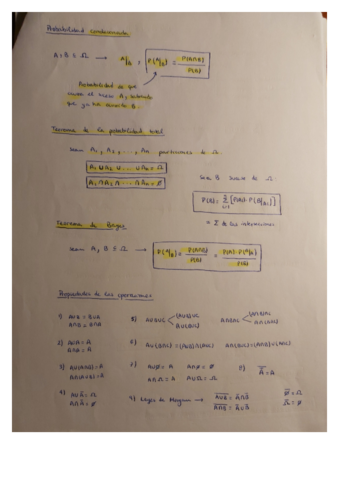 Probabilidad condicionada
A, B ⊆ Ω → A/B , P(A/B) = P(A∩B) / P(B)
Probabilidad de que
ocurra el suceso A, sabiendo
que ya ha ocurrido B.
Teorema de la probabilidad total
Sean A₁, A₂, ..., An particiones de Ω.
A₁ ∪ A₂ ∪ ... ∪ An = Ω
A₁ ∩ A₂ ∩ ... ∩ An = Ø
Sea B suceso de Ω:
P(B) = Σ [P(Ai) · P(B/Ai)]
Σ de las intersecciones
Teorema de Bayes
Sean A, B ⊆ Ω → P(A/B) = P(A∩B) / P(B) =
Propiedades de las operaciones
1) A∪B = B∪A
A∩B = B∩A
2) A∪A = A
A∩A = A
3) A∪(A∩B) = A
A∩(A∪B) = A
4) A∪Ā = Ω
A∩Ā = Ø
A∪B∪C (A∪B)∪C
A∪(B∪C)
A∩B∩C (A∩B)∩C
A∩(B∩C)
A∪(B∩C) = (A∪B)∩(A∪C)
A∩(B∪C) = (A∩B)∪(A∩C)
A∪Ø = A A∩Ø = Ø
A∩Ω = A A∪Ω = Ω
9) Leyes de Morgan →